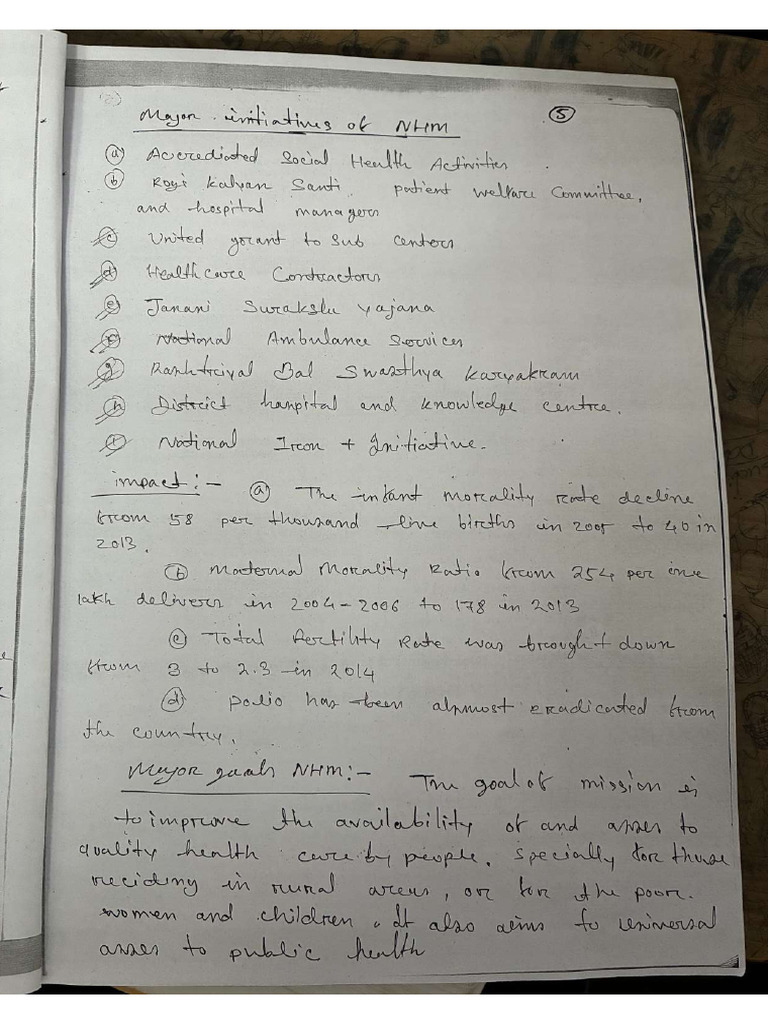 Major initiatives of NHM
(5)
(a) Accrediated Social Health Activities
(b) Rogi Kalyan Samti patient welfare Committee,
and hospital managers
(c) United grant to Sub centers
(d) Healthcare Contractors
(e) Janani Suraksha Yajana
National Ambulance Services
(g) Rashtriyal Bal Swasthya Karyakram
(h) District hospital and knowledge centre.
National Iron + Initiative.
impact:- (a) The infant morcality rate decline
from 58 per thousand live births in 2005 to 40 in
2013.
(b) Maternal Morcality Ratio from 254 per one
lakh delivers in 2004-2006 to 178 in 2013
(c) Total fertility Rate was brought down
from 3 to 2.3 in 2014
(d) polio has been almost eradicated from
the country.
Major goals NHM:- The goal of mission is
to improve the availability of and asses to
quality health care by people. Specially for those
reciding in rural areas, or for the poor.
women and children. It also aims to universal
asses to public health